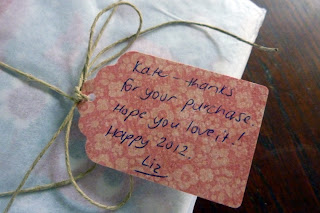 Kate - thanks
for your purchase
Hope you love it!
Happy 2012.
Liz